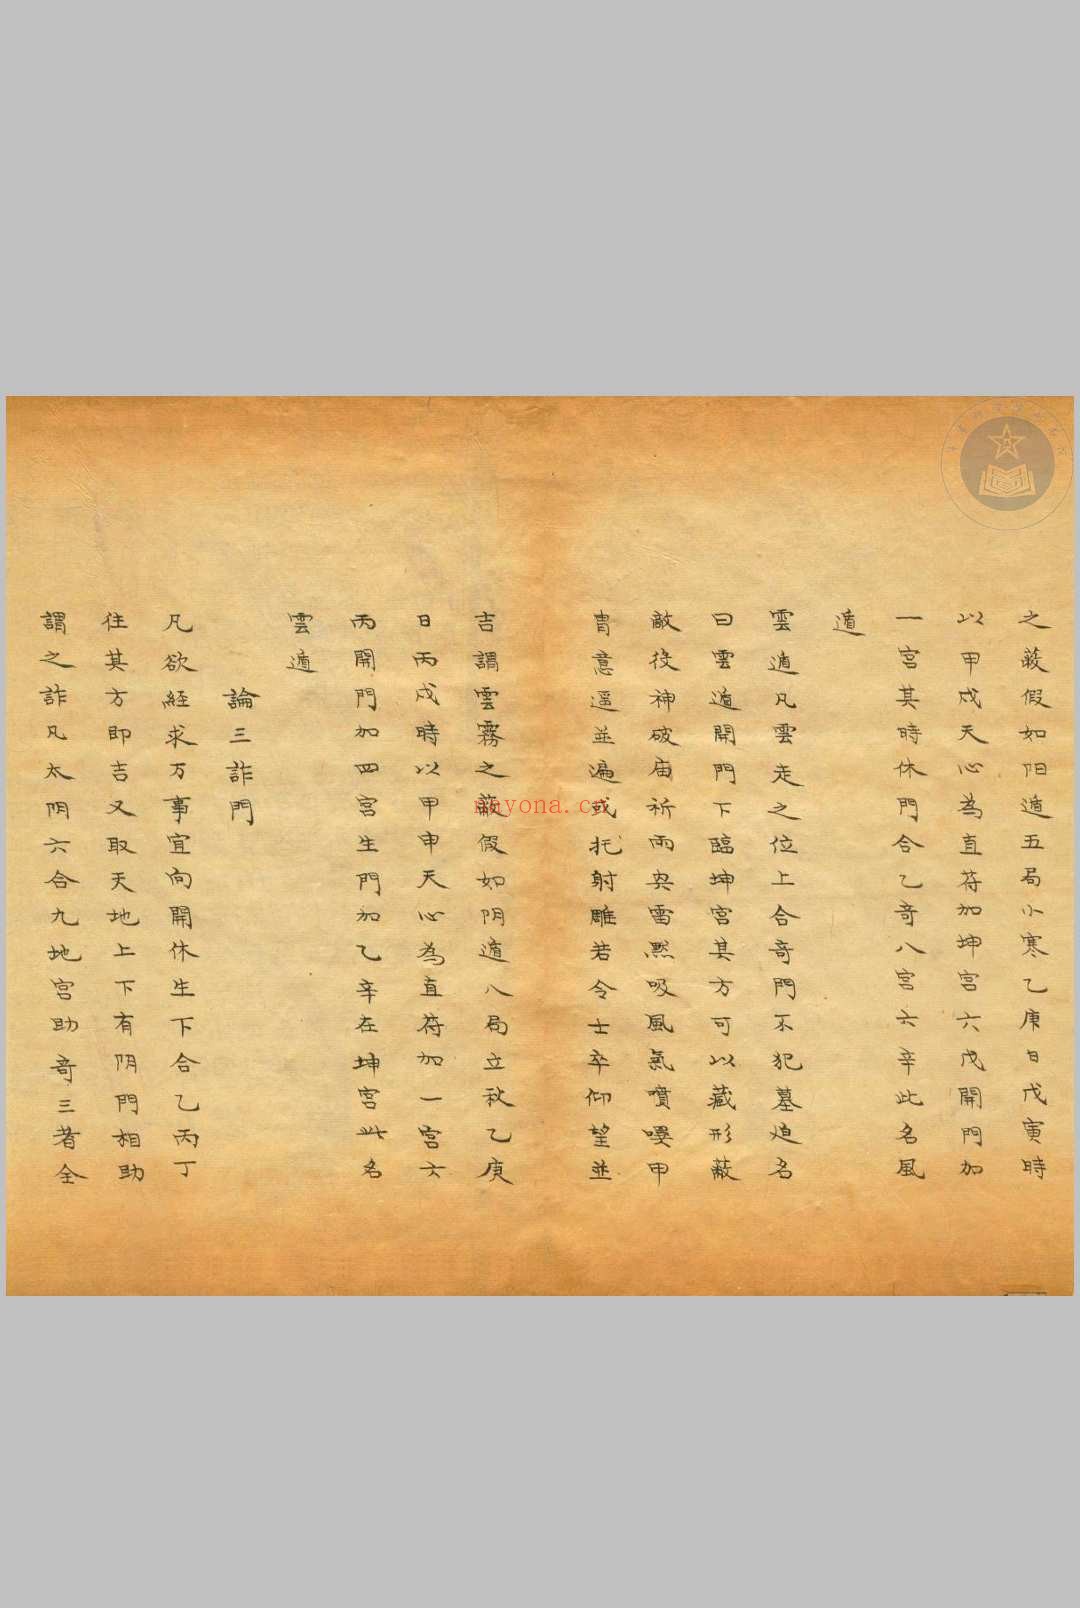 之蔽假如阳遁五局小寒乙庚日戊寅時
以甲戍天心為直符加坤宫六戊開門加
一宮其時休門合乙奇八宮六辛此名風
遁
雲遁凡雲走之位上合奇門不犯墓迫名
曰雲遁開門下臨坤宮其方可以藏形蔽
敵役神破庙祈雨央雷黙吸風氣噴嘆甲
胄意逼並遍或托射雕若令士卒仰望並
吉謂雲霧之蔽假如阴遁八局立秋乙庚
日丙戍時以甲申天心為直符加一宮六
丙開門加四宮生門加乙辛在坤宮此名
雲遁
論三詐門
凡欲経求万事宜向開休生下合乙丙丁
往其方即吉又取天地上下有阴門相助
謂之詐凡太阴六合九地宮助奇三者全
nayona.cn